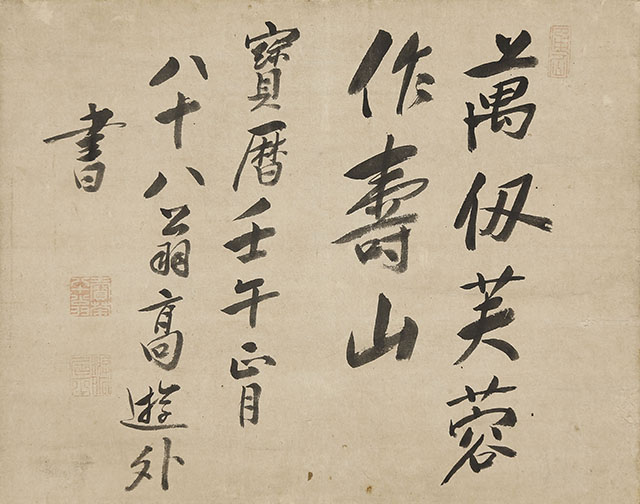 萬仭芙蓉
作壽山
寳暦壬午正月
八十八翁高遊外
書